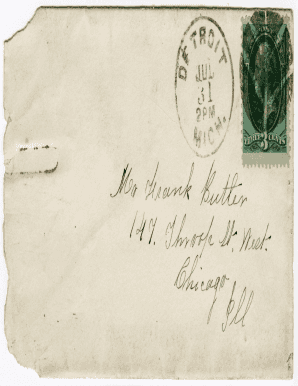 DETROIT
JUL
31
2PM
MICH.
3 CENTS
Mr Frank Butler
147. Throop St. West.
Chicago
Ill